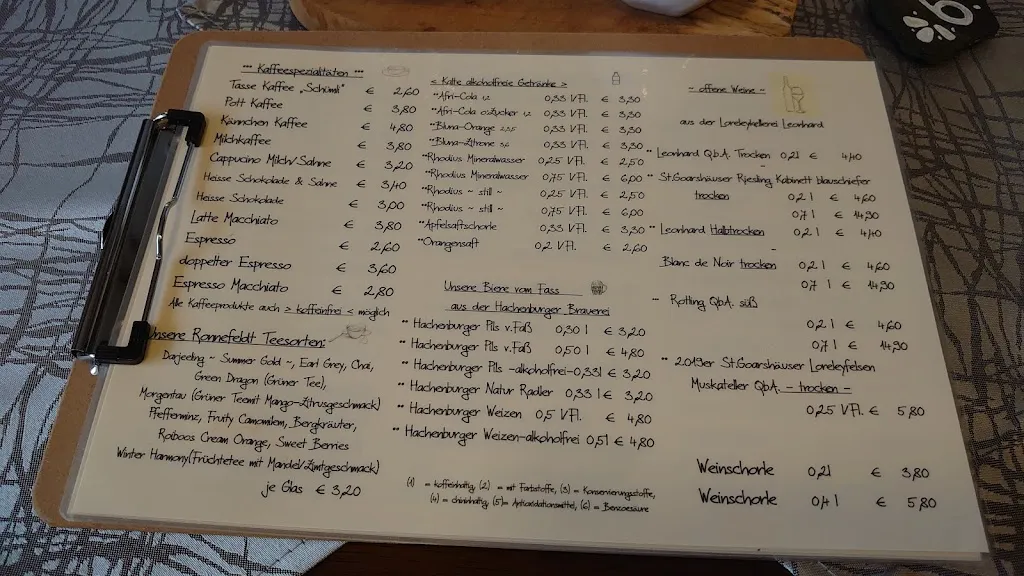 *** Kaffeespezialitäten ***
Tasse Kaffee „Schümli" € 2,60
Pott Kaffee € 3,80
Kännchen Kaffee € 4,80
Milchkaffee € 3,80
Cappucino Milch/Sahne € 3,20
Heisse Schokolade & Sahne € 3,40
Heisse Schokolade € 3,00
Latte Macchiato € 3,80
Espresso € 2,60
doppelter Espresso € 3,60
Espresso Macchiato € 2,80
Alle Kaffeeprodukte auch > koffeinfrei < möglich
Unsere Ronnefeldt Teesorten:
Darjeeling ~ Summer Gold ~, Earl Grey, Chai,
Green Dragon (Grüner Tee),
Morgentau (Grüner Teemit Mango-Zitrusgeschmack)
Pfefferminz, Fruity Camomilem, Bergkräuter,
Roiboos Cream Orange, Sweet Berries
Winter Harmony(Früchtetee mit Mandel/Zimtgeschmack)
je Glas € 3,20
< Kalte alkoholfreie Getränke >
**Afri-Cola 1,2 0,33 VFl. € 3,30
**Afri-Cola o.Zucker 1,2 0,33 VFl. € 3,30
**Bluna-Orange 0,33 VFl. € 3,30
**Bluna-Zitrone 0,33 VFl. € 3,30
**Rhodius Mineralwasser 0,25 VFl. € 2,50
**Rhodius Mineralwasser 0,75 VFl. € 6,00
**Rhodius ~ still ~ 0,25 VFl. € 2,50
**Rhodius ~ still ~ 0,75 VFl. € 6,00
**Apfelsaftschorle 0,33 VFl. € 3,30
**Orangensaft 0,2 VFl. € 2,60
Unsere Biene vom Fass
aus der Hachenburger Brauerei
** Hachenburger Pils v.Faß 0,30 l € 3,20
** Hachenburger Pils v.Faß 0,50 l € 4,80
** Hachenburger Pils -alkoholfrei-0,33l € 3,20
** Hachenburger Natur Radler 0,33 l € 3,20
** Hachenburger Weizen 0,5 VFl. € 4,80
** Hachenburger Weizen-alkoholfrei 0,5l € 4,80
(1) = koffeinhaltig, (2) = mit Farbstoffe, (3) = Konservierungsstoffe,
(4) = chininhaltig, (5)= Antioxidationsmittel, (6) = Benzoesäure
~ offene Weine ~
aus der Loreleykellerei Leonhard
** Leonhard Q.b.A. Trocken 0,2l € 4,40
** St.Goarshäuser Riesling Kabinett blauschiefer
trocken 0,2 l € 4,60
0,7 l € 14,90
** Leonhard Halbtrocken 0,2 l € 4,40
Blanc de Noir trocken 0,2 l € 4,60
0,7 l € 14,90
** Rotling QbA. süß
0,2 l € 4,60
0,7 l € 14,90
** 2019er St.Goarshäuser Loreleyfelsen
Muskateller QbA. - trocken -
0,25 VFl. € 5,80
Weinschorle 0,2l € 3,80
Weinschorle 0,4 l € 5,80
6